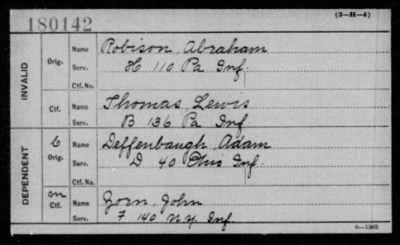 180142
(3-H-4)
INVALID
Orig.
Name Robison, Abraham
Serv. H 110 Pa Inf.
Ctf. No.
Ctf.
Name Thomas, Lewis
Serv. B 136 Pa Inf
DEPENDENT
C
Orig.
Name Deffenbaugh, Adam
Serv. D 40 Ohio Inf.
Ctf. No.
Ctf.
Name Zorn, John
Serv. F 140 N.Y. Inf